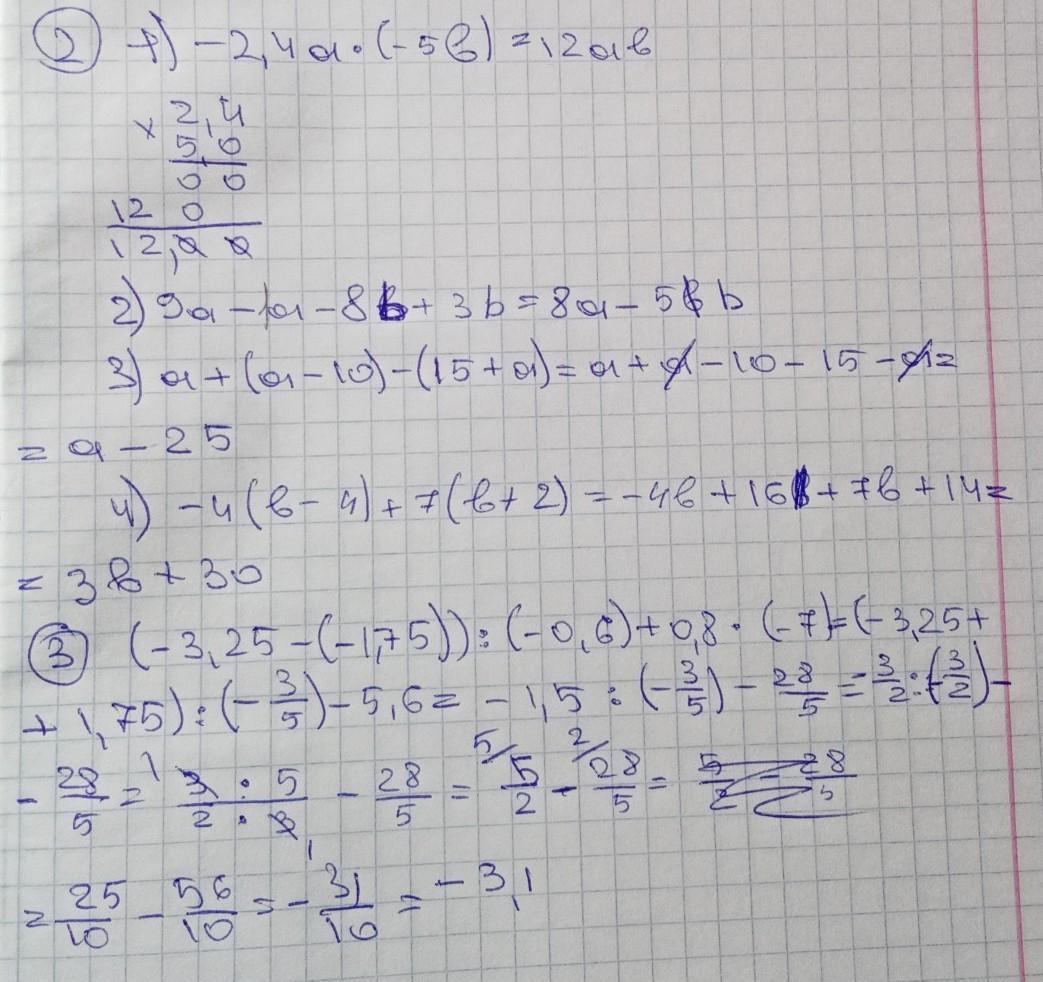 2 1) -2,4a·(-5b)=12ab
× 2,4
5,0
0 0
12 0
12,0 0
2) 9a-1a-8b+3b=8a-5b
3) a+(a-10)-(15+a)=a+a-10-15-a=
= a-25
4) -4(b-4)+7(b+2)=-4b+16+7b+14=
= 3b+30
3 (-3,25-(-1,75)):(-0,6)+0,8·(-7)=(-3,25+
+1,75):(-3/5)-5,6=-1,5:(-3/5)-28/5=-3/2:(-3/2)-
-28/5= 3:5/2:3 - 28/5 = 5/2 - 28/5 =
= 25/10 - 56/10 = -31/10 = -3,1